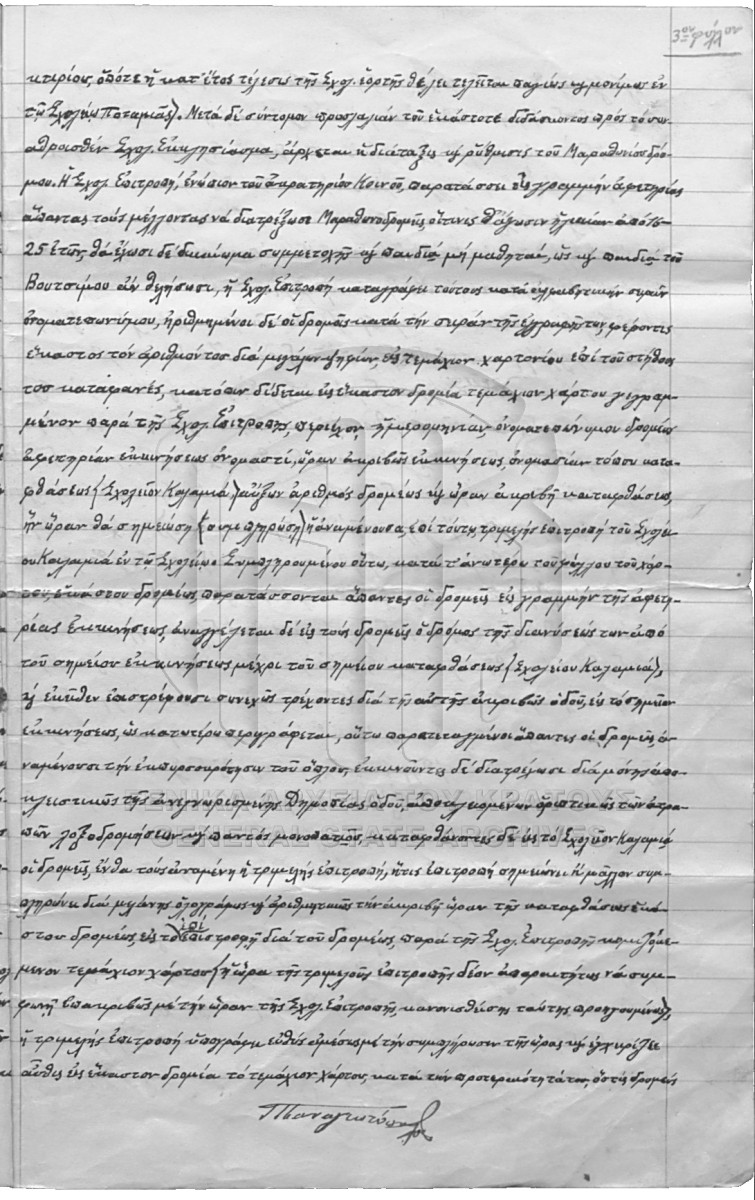 3ον φύλλον
κτιρίου, ὁπότε ἡ κατ' ἔτος τέλεσις τῆς Σχολ. ἑορτῆς θέλει τελεῖται παγίως καὶ μονίμως ἐν
τῷ Σχολείῳ Ποταμιᾶς). Μετά δέ σύντομον προσλαλιάν τοῦ ἑκάστοτε διδάσκοντος πρός τό συν-
αθροισθέν Σχολ. Ἐκκλησίασμα, ἄρχεται ἡ διάταξις καὶ ρύθμισις τοῦ Μαραθωνίου δρό-
μου. Ἡ Σχολ. Ἐπιτροπή, ἐνώπιον τοῦ ἀκροατηρίου Κοινοῦ, παρατάσσει εἰς γραμμήν ἀφετηρίας
ἅπαντας τούς μέλλοντας νά διατρέξωσι Μαραθωνοδρομεῖς, οἵτινες θά ἄγωσιν ἡλικίαν ἀπό 16-
25 ἐτῶν, θά ἔχωσι δέ δικαίωμα συμμετοχῆς καὶ παιδιά μή μαθηταί, ὡς καὶ παιδιά τοῦ
Βουτσίμου ἄν θελήσωσι, ἡ Σχολ. Ἐπιτροπή καταγράφει τούτους κατά ἀλφαβητικήν σειράν
ὀνοματεπωνύμου, ἠριθμημένοι δέ οἱ δρομεῖς κατά τήν σειράν τῆς ἐγγραφῆς των, φέροντες
ἕκαστος τόν ἀριθμόν του διά μεγάλων ψηφίων, εἰς τεμάχιον χαρτονίου ἐπί τοῦ στήθους
του καταφανές, κατόπιν δίδεται εἰς ἕκαστον δρομέα τεμάχιον χάρτου γεγραμ-
μένον παρά τῆς Σχολ. Ἐπιτροπῆς, περιέχον, ἡμερομηνίαν, ὀνοματεπώνυμον δρομέως
ἀφετηρίαν ἐκκινήσεως ὀνομαστί, ὥραν ἀκριβῶς ἐκκινήσεως, ὀνομασίαν τόπου κατα-
φθάσεως (Σχολεῖον Καλαμιά) αὔξων ἀριθμός δρομέως καὶ ὥραν ἀκριβῆ καταφθάσεως,
ἥν ὥραν θά σημειώση (συμπληρώση) ἡ ἀναμένουσα ἐπί τούτῳ τριμελής ἐπιτροπή τοῦ Σχολεί-
ου Καλαμιά ἐν τῷ Σχολείῳ. Συμπληρουμένου οὕτω, κατά τ' ἀνωτέρω τοῦ φύλλου τοῦ χάρ-
του, ἑκάστου δρομέως, παρατάσσονται ἅπαντες οἱ δρομεῖς εἰς γραμμήν τῆς ἀφετη-
ρίας ἐκκινήσεως, ἀναγγέλεται δέ εἰς τούς δρομεῖς ὁ δρόμος τῆς διανύσεώς των ἀπό
τοῦ σημείου ἐκκινήσεως μέχρι τοῦ σημείου καταφθάσεως (Σχολείου Καλαμιά),
καὶ ἐκεῖθεν ἐπιστρέφουσι συνεχῶς τρέχοντες διά τῆς αὐτῆς ἀκριβῶς ὁδοῦ, εἰς τό σημεῖον
ἐκκινήσεως, ὡς κατωτέρω περιγράφεται, οὕτω παρατεταγμένοι ἅπαντες οἱ δρομεῖς, ἀ-
ναμένουσι τήν ἐκπυρσοκρότησιν τοῦ ὅπλου, ἐκκινοῦντες δέ διατρέχωσι διά μόνης ἀπο-
κλειστικῶς τῆς ἀνεγνωρισμένης Δημοσίας ὁδοῦ, ἀποκλειομένων ὁριστικῶς τῶν ἀτρα-
πῶν λοξοδρομήσεων καὶ παντός μονοπατιοῦ, καταφθάσαντες δέ εἰς τό Σχολεῖον Καλαμιά
οἱ δρομεῖς, ἔνθα τούς ἀναμένη ἡ τριμελής ἐπιτροπή, ἥτις ἐπιτροπή σημειώνει ἤ μᾶλλον συμ-
πληρώνει διά μελάνης ὁλογράφως καὶ ἀριθμητικῶς τήν ἀκριβῆ ὥραν τῆς καταφθάσεως ἑκά-
στου δρομέως, εἰς τό ἐπί ἐπιστροφῇ διά τοῦ δρομέως, παρά τῆς Σχολ. Ἐπιτροπῆς κομιζόμε-
μενον τεμάχιον χάρτου (ἡ ὥρα τῆς τριμελοῦς ἐπιτροπῆς δέον ἀπαραιτήτως νά συμ-
φωνῆ ἐπακριβῶς μέ τήν ὥραν τῆς Σχολ. Ἐπιτροπῆς κανονισθείσης ταύτης προηγουμένως),
ἡ τριμελής ἐπιτροπή ὑπογράφει εὐθύς ἀμέσως μέ τήν συμπλήρωσιν τῆς ὥρας καὶ ἐγχειρίζει
αὖθις εἰς ἕκαστον δρομέα τό τεμάχιον χάρτου, κατά τήν προτεραιότητά του, ὅστις δρομεύς
ΓΕΝΙΚΑ ΑΡΧΕΙΑ ΤΟΥ ΚΡΑΤΟΥΣ
GENERAL STATE ARCHIVES